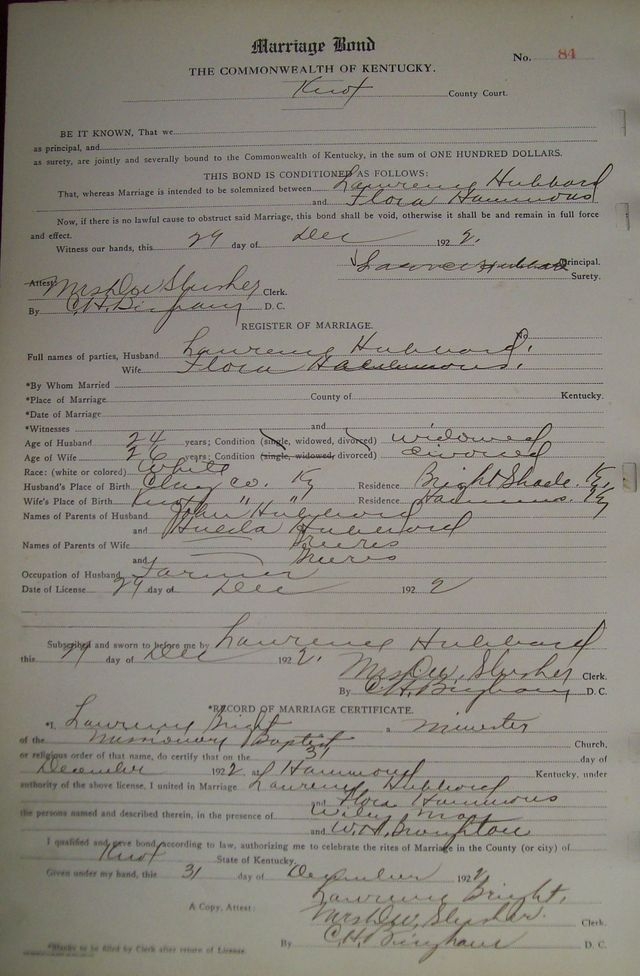 Marriage Bond
No. 84
THE COMMONWEALTH OF KENTUCKY.
Knox County Court.
BE IT KNOWN, That we
as principal, and
as surety, are jointly and severally bound to the Commonwealth of Kentucky, in the sum of ONE HUNDRED DOLLARS.
THIS BOND IS CONDITIONED AS FOLLOWS:
That, whereas Marriage is intended to be solemnized between Lawrence Hubbard
and Flora Hammons
Now, if there is no lawful cause to obstruct said Marriage, this bond shall be void, otherwise it shall be and remain in full force
and effect.
Witness our hands, this 29 day of Dec 1922.
Lawrence Hubbard Principal.
Surety.
Attest: Mrs D W Slusher Clerk.
By C. H. Bingham D. C.
REGISTER OF MARRIAGE.
Full names of parties, Husband Lawrence Hubbard.
Wife Flora Hammons.
*By Whom Married
*Place of Marriage County of Kentucky.
*Date of Marriage
*Witnesses and
Age of Husband 24 years; Condition (single, widowed, divorced) widowed
Age of Wife 26 years; Condition (single, widowed, divorced) divorced
Race: (white or colored) White
Husband's Place of Birth Clay Co. Ky Residence Bright Shade Ky
Wife's Place of Birth Knox " " Residence Hammons Ky
Names of Parents of Husband John Hubbard
and Hubbard
Names of Parents of Wife
and
Occupation of Husband Farmer
Date of License 29 day of Dec 1922
Subscribed and sworn to before me by Lawrence Hubbard
this 29 day of Dec 1922.
Mrs D W. Slusher Clerk.
By C H. Bingham D. C.
*RECORD OF MARRIAGE CERTIFICATE.
*I, Lawrence Bright a Minister
of the Missionary Baptist Church,
or religious order of that name, do certify that on the 31 day of
December 1922 at Hammond Kentucky, under
authority of the above license, I united in Marriage Lawrence Hubbard
and Flora Hammons
the persons named and described therein, in the presence of Wiley
and W. H. Broughton
I qualified and gave bond according to law, authorizing me to celebrate the rites of Marriage in the County (or city) of
Knox State of Kentucky.
Given under my hand, this 31 day of December 1922
Lawrence Bright.
A Copy, Attest: Mrs D W. Slusher Clerk.
By C. H. Bingham D. C.
*Blanks to be filled by Clerk after return of License.